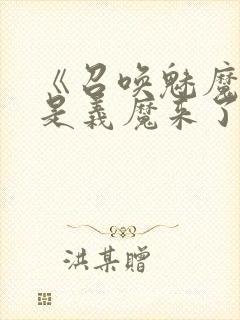 《召唤魅魔
是义魔来了
洪某赠